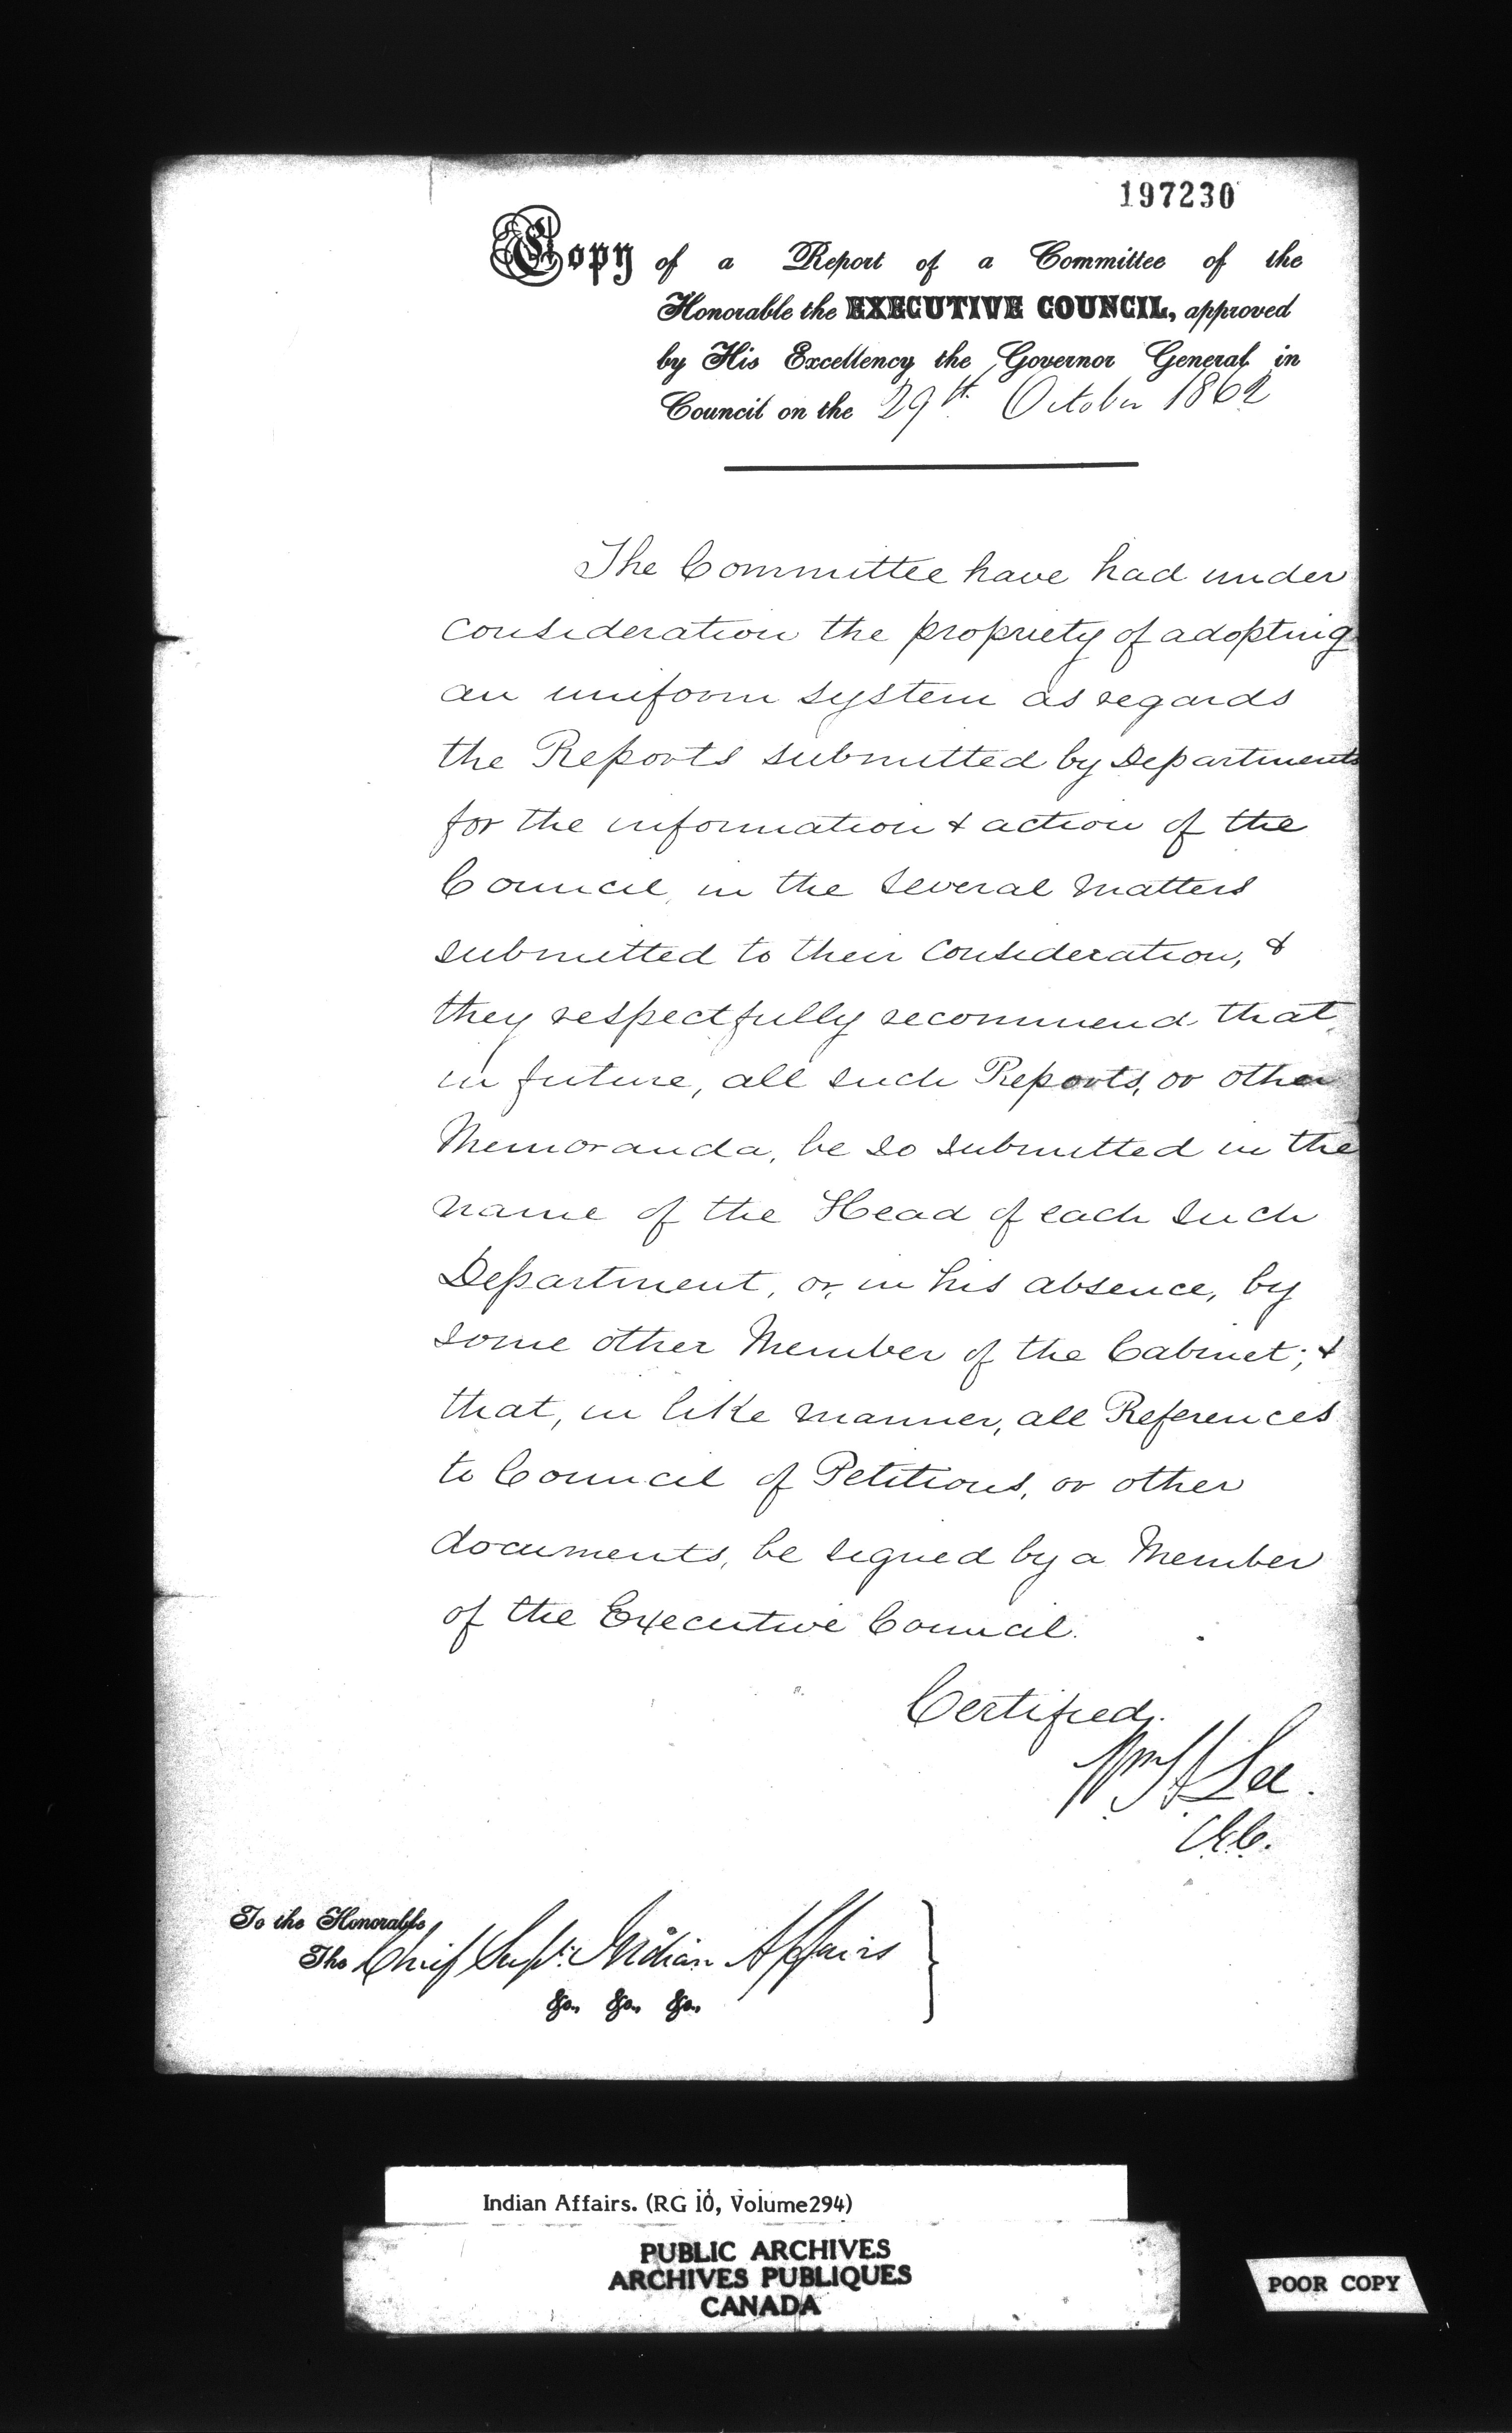 197230
Copy of a Report of a Committee of the
Honorable the EXECUTIVE COUNCIL, approved
by His Excellency the Governor General in
Council on the 29th October 1862
The Committee have had under
consideration the propriety of adopting
an uniform system as regards
the Reports submitted by Departments
for the information & action of the
Council, in the several matters
submitted to their consideration, &
they respectfully recommend that,
in future, all such Reports, or other
Memoranda, be so submitted in the
name of the Head of each such
Department, or, in his absence, by
some other Member of the Cabinet; &
that, in like manner, all References
to Council of Petitions, or other
documents, be signed by a Member
of the Executive Council.
Certified.
Wm H Lee.
C.E.C.
To the Honorable
The Chief Supt. Indian Affairs
&c., &c., &c.,
Indian Affairs. (RG 10, Volume294)
PUBLIC ARCHIVES
ARCHIVES PUBLIQUES
CANADA
POOR COPY